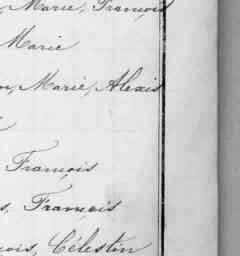 , Marie, François
Marie
n, Marie, Alexis
François
s, François
çois, Célestin